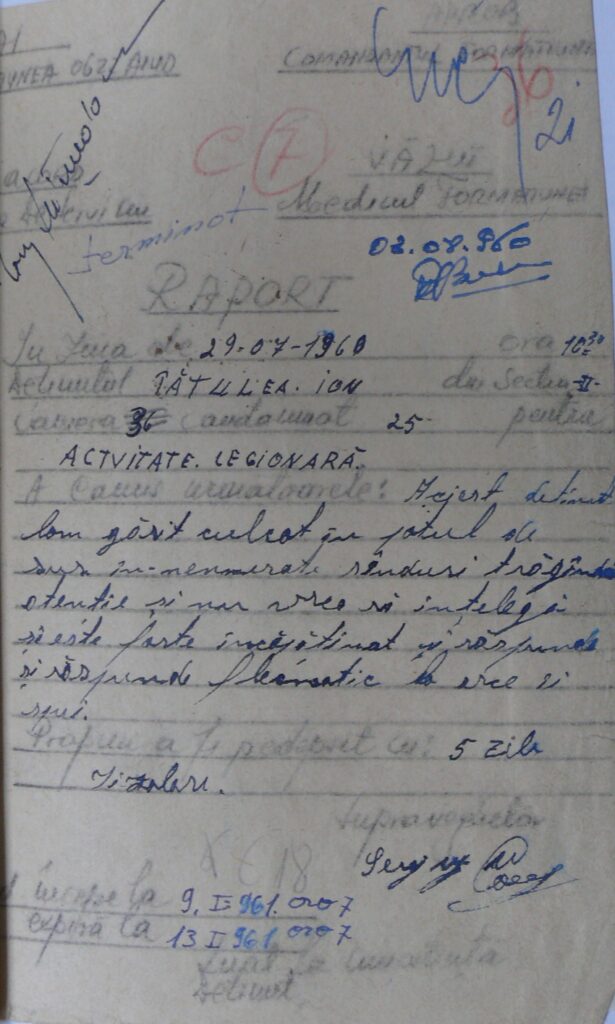 MAI
FORMAȚIUNEA 0622 AIUD
APROB
COMANDANTUL FORMAȚIUNII
2 zi
C 7
VĂZUT
Medicul FORMAȚIUNEI
Terminat
02.08.960
RAPORT
În ziua de 29-07-1960 ora 10³⁰
deținutul TĂTULEA. ION din Secția II-
Camera 36 Condamnat 25 pentru
ACTVITATE. LEGIONARĂ.
A comis următoarele: Acest deținut
lam găsit culcat în patul de
sus in-nenumerate rînduri trăgîndui
atenție și nar vrea să înțelegă
și este forte încăpățînat și răspunde
și răspunde flecmatic la orce îi
spui.
Propun a fi pedepsit cu: 5 zile
izolare.
Supraveghetor
Serg
începe la 9. I 961. ora 7
expiră la 13 I 961 ora 7
Luat la cunoștință
Deținut